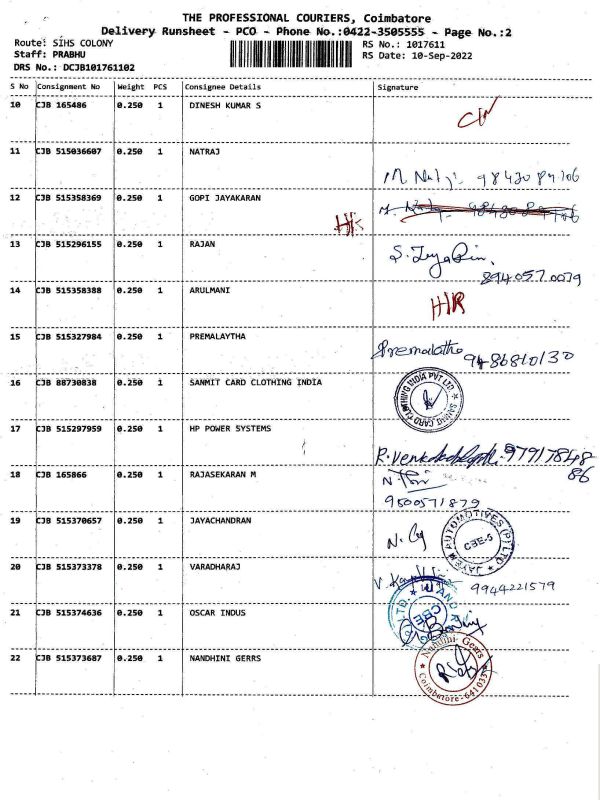 THE PROFESSIONAL COURIERS, Coimbatore
Delivery Runsheet - PCO - Phone No.:0422-3505555 - Page No.:2
Route: SIHS COLONY RS No.: 1017611
Staff: PRABHU RS Date: 10-Sep-2022
DRS No.: DCJB101761102
S No Consignment No Weight PCS Consignee Details Signature
10 CJB 165486 0.250 1 DINESH KUMAR S
11 CJB 515036607 0.250 1 NATRAJ
9843089106
12 CJB 515358369 0.250 1 GOPI JAYAKARAN
13 CJB 515296155 0.250 1 RAJAN
8940570079
14 CJB 515358388 0.250 1 ARULMANI
15 CJB 515327984 0.250 1 PREMALAYTHA
Premalatha
9486810130
16 CJB 88730838 0.250 1 SANMIT CARD CLOTHING INDIA
SANMIT CARD CLOTHING INDIA PVT LTD
17 CJB 515297959 0.250 1 HP POWER SYSTEMS
9791784886
18 CJB 165866 0.250 1 RAJASEKARAN M
9500571879
19 CJB 515370657 0.250 1 JAYACHANDRAN
JAYEM AUTOMOTIVES (P) LTD
CBE-5
20 CJB 515373378 0.250 1 VARADHARAJ
9944221579
21 CJB 515374636 0.250 1 OSCAR INDUS
22 CJB 515373687 0.250 1 NANDHINI GERRS
Nandhini Gears
Coimbatore-641033